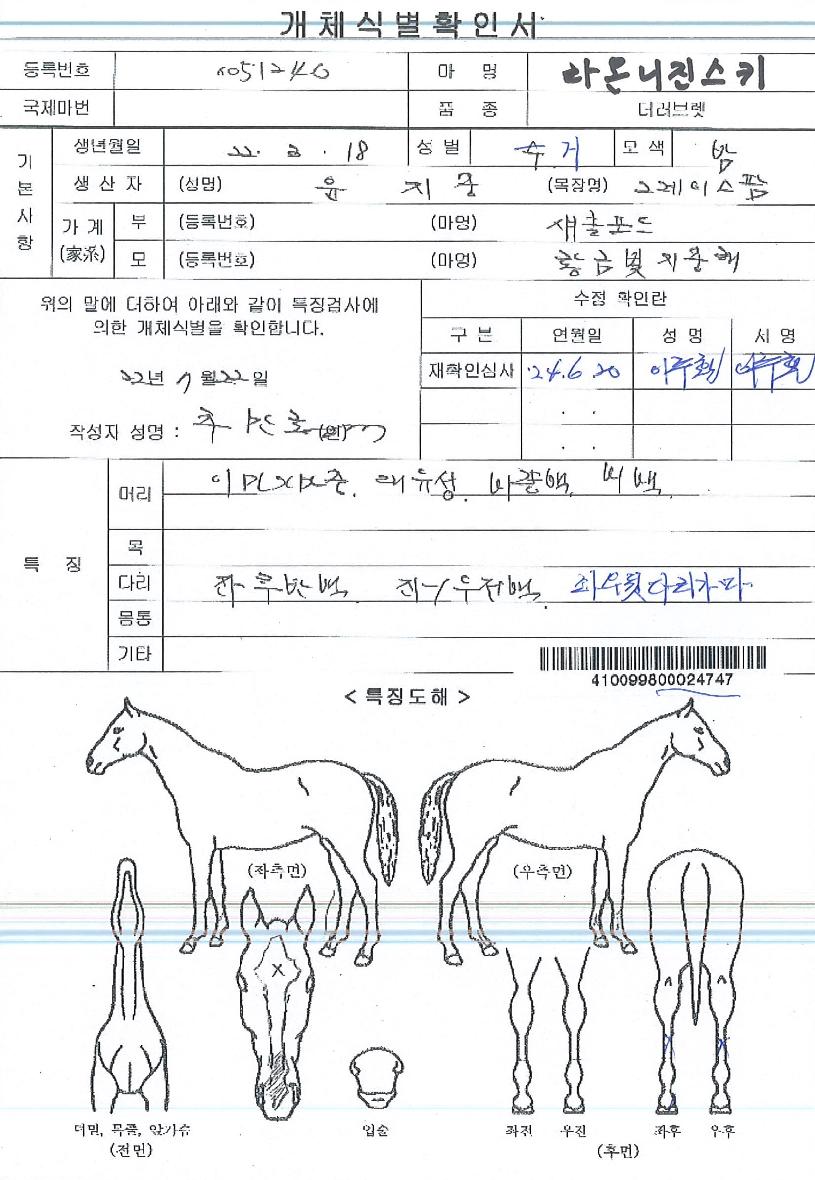 개체식별확인서
등록번호 마명 라온니진스키
국제마번 품종 더러브렛
기본사항
생년월일 22. 3. 18 성별 수 거 모색 밤
생산자 (성명) 윤 지 중 (목장명) 그레이스팜
가계(家系) 부 (등록번호) (마명) 섀클포드
모 (등록번호) (마명) 황금빛
위의 말에 더하여 아래와 같이 특징검사에
의한 개체식별을 확인합니다.
22년 7월 22일
작성자 성명 : (인)
수정 확인란
구분 연월일 성명 서명
재확인심사 '24. 6. 20
. .
. .
특징
머리 대유성, 비백
목
다리 좌후 좌우뒷다리가마
몸통
기타
410099800024747
< 특징도해 >
(좌측면) (우측면)
X
턱밑, 목줄, 앞가슴
(전면)
입술
좌전 우전 좌후 우후
(후면)